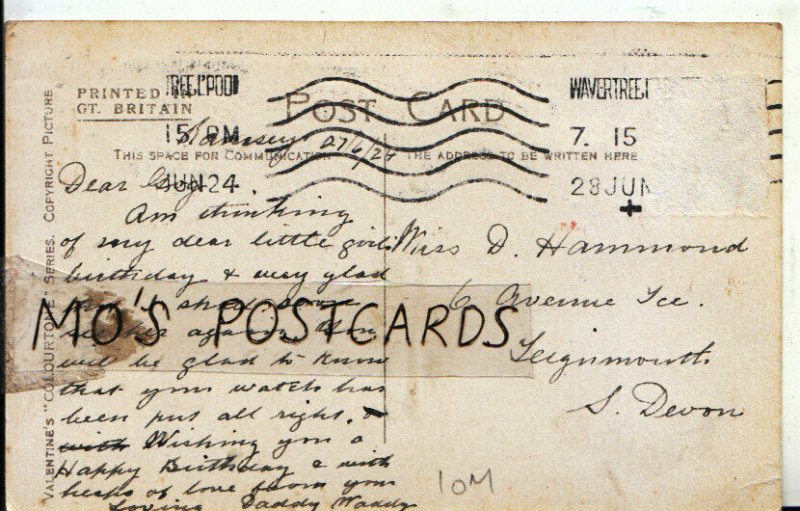 PRINTED IN
GT. BRITAIN
POST CARD
WAVERTREE L'POOL
7. 15 PM
28 JUN 24
WAVERTREE
7. 15
28 JUN
THIS SPACE FOR COMMUNICATION
THE ADDRESS TO BE WRITTEN HERE
VALENTINE'S "COLOURTONE" SERIES. COPYRIGHT PICTURE
27/6/24
Dear
Am thinking
of my dear little girls
birthday & very glad
that I shall soon
see her again. You
will be glad to know
that your watch has
been put all right. &
with Wishing you a
Happy Birthday & with
heaps of love from your
Loving Daddy Waddy
Miss D. Hammond
6 Avenue Tce.
Teignmouth
S. Devon
MO'S POSTCARDS
10M